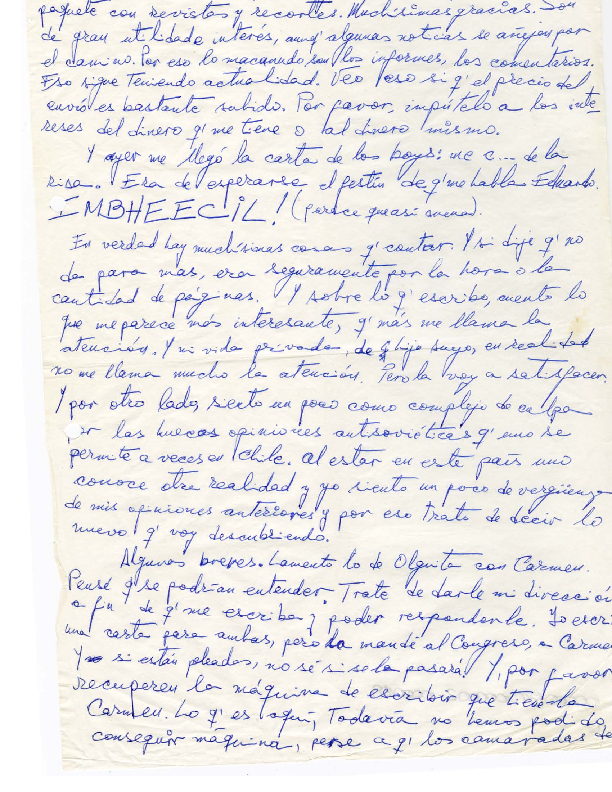 paquete con revistas y recortes. Muchísimas gracias. Son
de gran utilidad e interés, aunq' algunas noticias se añejan por
el camino. Por eso lo macanudo, son los informes, los comentarios.
Eso sigue teniendo actualidad. Veo eso si q' el precio del
envío es bastante subido. Por favor, impútelo a los inte-
reses del dinero q' me tiene o al dinero mismo.
Y ayer me llegó la carta de los boys: me c... de la
risa. Era de esperarse el festín de q' me habla Eduardo.
IMBHEECIL! (parece que así suena).
En verdad hay muchísimas cosas q' contar. Y si dije q' no
da para mas, era seguramente por la hora o la
cantidad de páginas. Y sobre lo q' escribo, cuento lo
que me parece más interesante, q' más me llama la
atención. Y mi vida privada, de hijo suyo, en realidad
no me llama mucho la atención. Pero la voy a satisfacer.
Y por otro lado, siento un poco como complejo de culpa
por las huecas opiniones antisoviéticas q' uno se
permite a veces en Chile. Al estar en este país uno
conoce otra realidad y yo siento un poco de vergüenza
de mis opiniones anteriores y por eso trato de decir lo
nuevo q' voy descubriendo.
Algunas breves. Lamento lo de Olguita con Carmen.
Pensé q' se podrían entender. Trate de darle mi dirección
a fin de q' me escriba y poder responderle. Yo escri
una carta para ambas, pero la mandé al Congreso, a Carmen
Y si están peleadas, no sé si se la pasará. Y, por favor
recuperen la máquina de escribir que tiene la
Carmen. Lo q' es aquí, todavía no hemos podido
conseguir máquina, pese a q' los camaradas de